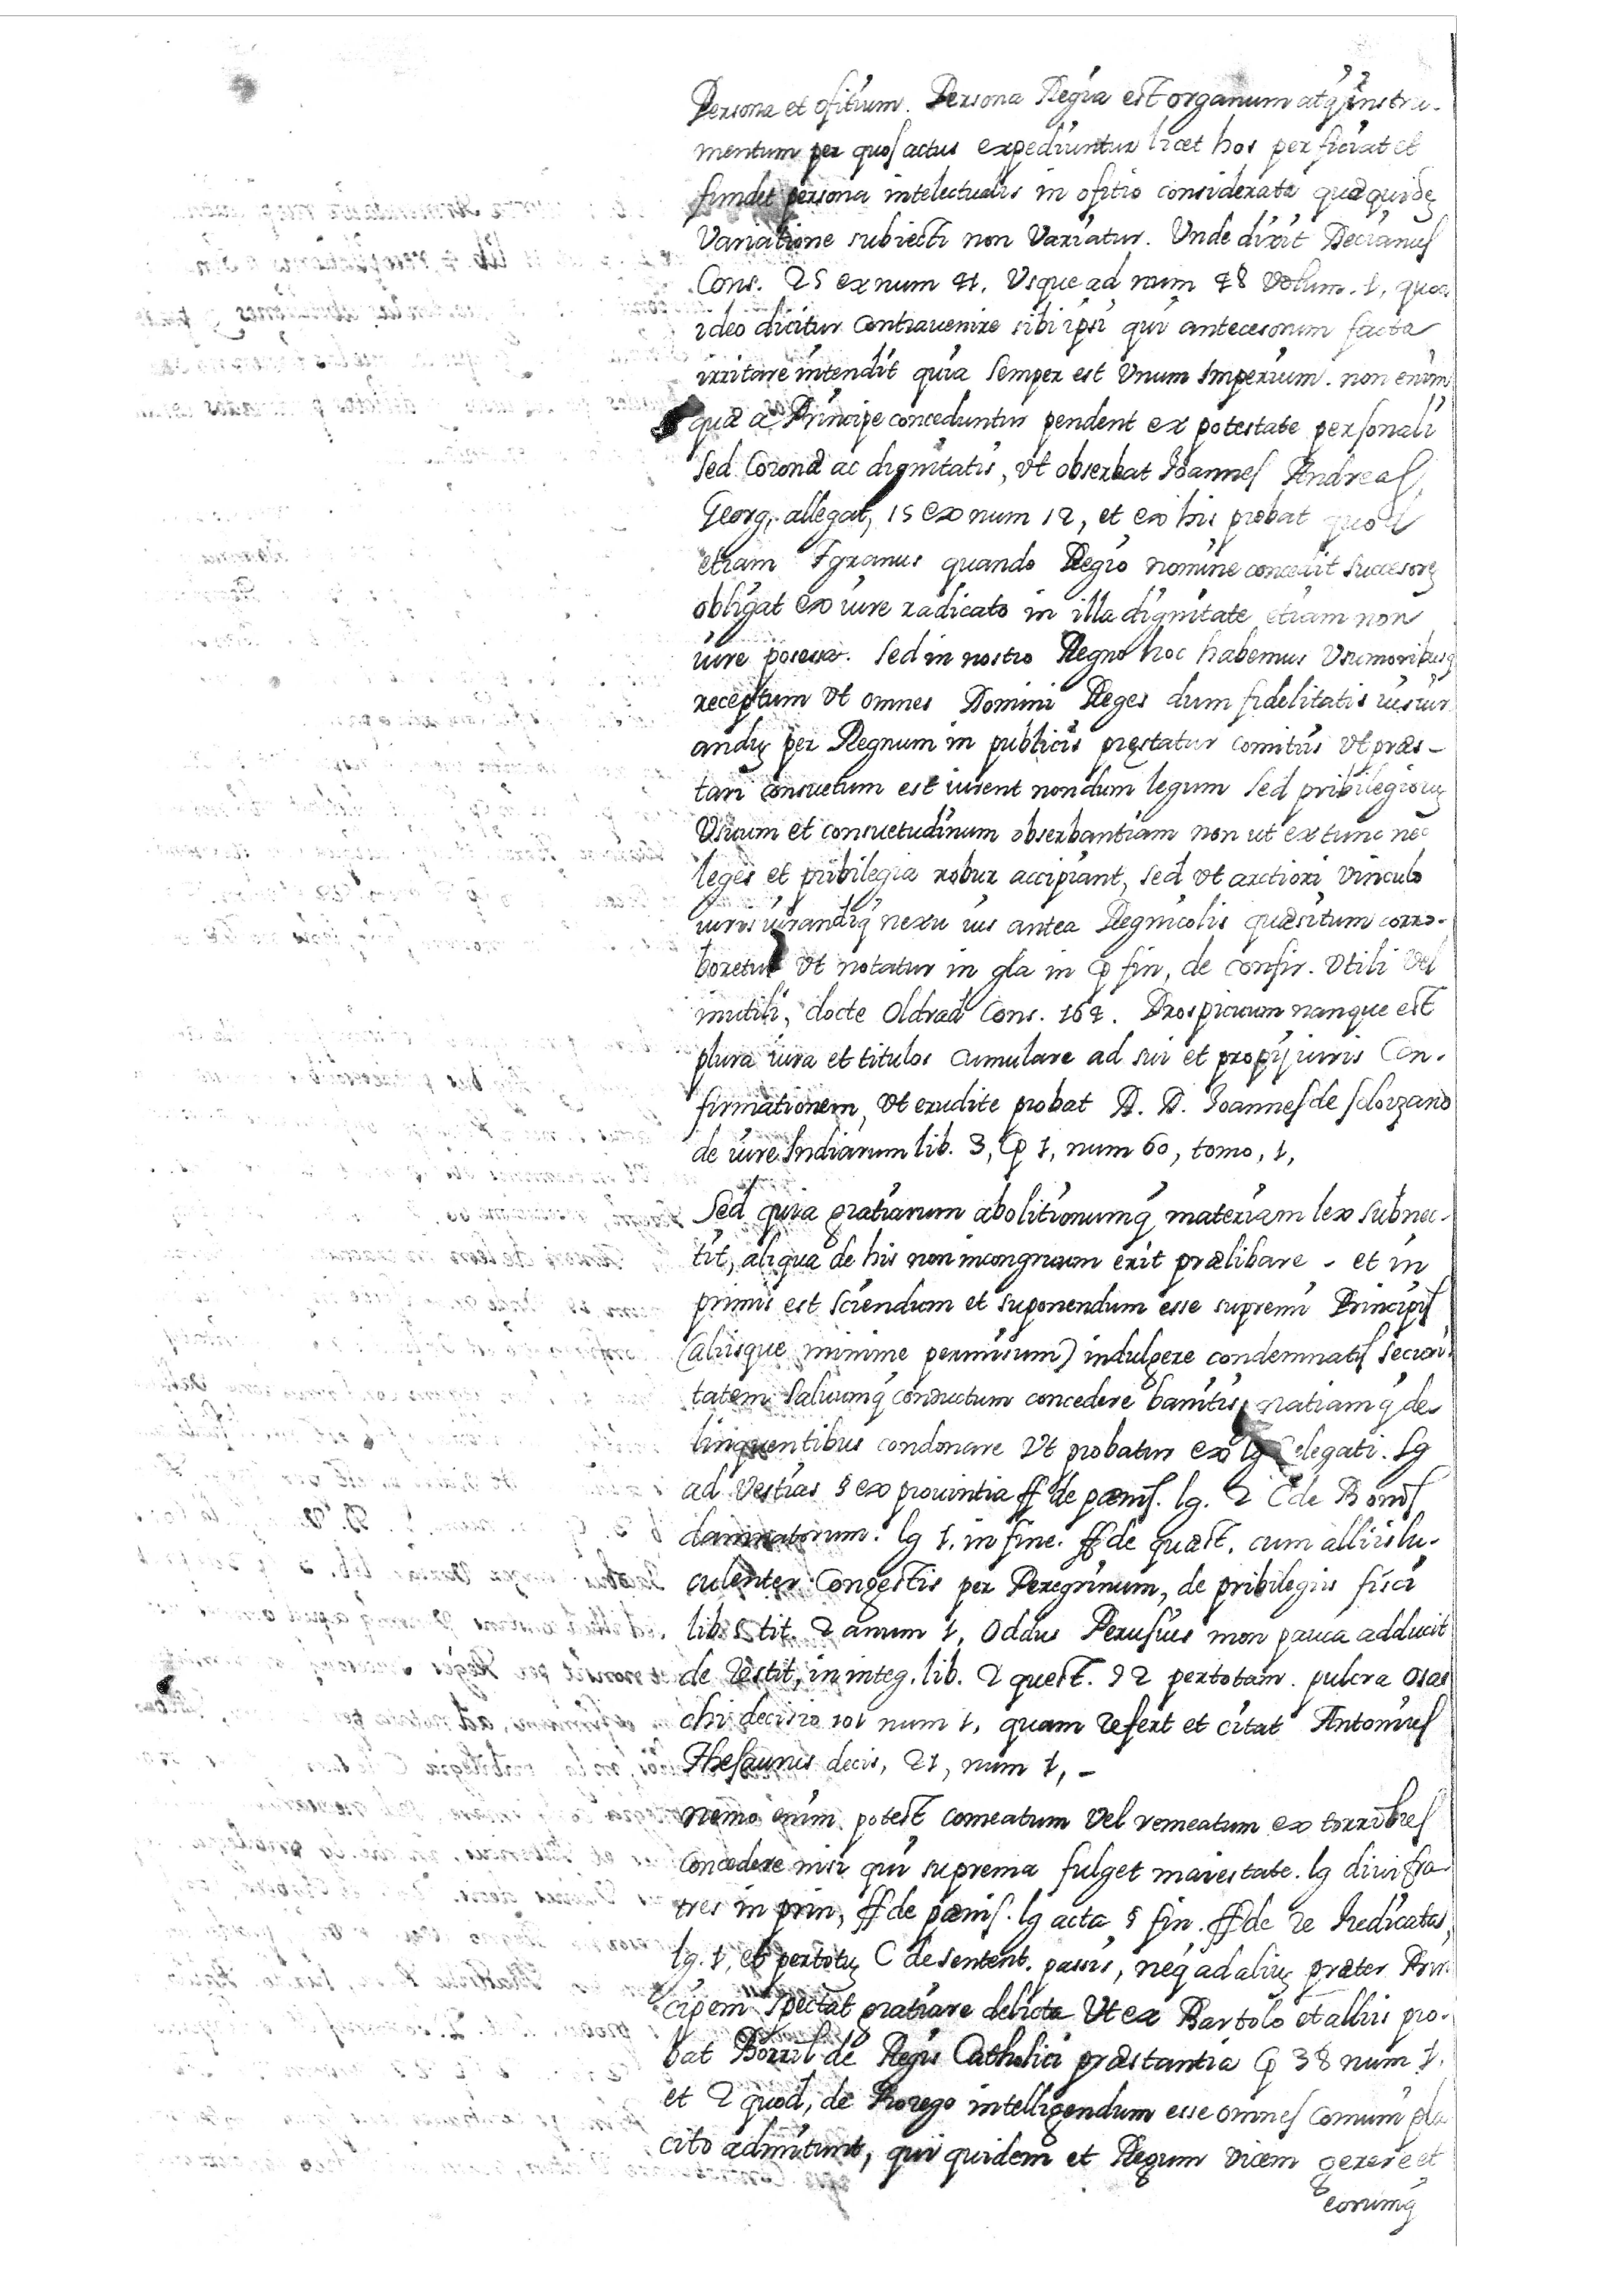 Persona et ofitium. Persona Regia est organum atq instru-
mentum per quos actus expediuntur licet hos perficiat et
fundet persona intelectualis in ofitio considerata quæ quidẽ
Variatione subiecti non Variatur. Unde dixit Decianus
Cons. 25 ex num 41. Usque ad num 48 Volum. 1, quod
ideo dicitur Contravenire sibi ipsi qui antecesorum facta
irritare intendit quia semper est Unum Imperium. non enim
quæ a Principe conceduntur pendent ex potestate personali
sed Coronæ ac dignitatis, Vt obserbat Joannes Andreas,
Georg, allegat, 15 ex num 12, et ex his probat quod
etiam Tyranus quando Regio nomine concedit succesorẽ
obligat ex iure radicato in illa dignitate etiam non
iure posessa. Sed in nostro Regno hoc habemus Usu moribusq
receptum Vt omnes Domini Reges dum fidelitatis iusiur
andũ per Regnum in publicis prestatur comitiis Vt præs-
tari consuetum est iurent nondum legum sed pribilegiorũ
Usuum et consuetudinum obserbantiam non ut ex tunc nec
leges et pribilegia robur accipiant, sed Vt arctiori Vinculo
iurisiurandiq nexu ius antea Regnicolis quæsitum corro-
boretur Vt notatur in gla in Cp fin, de confir. Vtili Vel
inutili, docte Oldrad Cons. 164. Prospicuum nanque est
plura iura et titulos Cumulare ad sui et propij iuris Con-
firmationem, Vt erudite probat D. D. Joannes de Solorzano
de iure Indiarum lib. 3, Cp 1, num 60, tomo, 1,
Sed quia gratiarum abolitionumq materiam lex subnec-
tit, aliqua de his non incongruum erit prælibare - et in
primis est Sciendum et suponendum esse supremi Principis
(aliisque minime permisum) indulgere condemnatis securi-
tatem Saluumq conductum concedere banitis, gratiamq de
linquentibus condonare Vt probatur ex lg Relegati. lg
ad Vestias § ex provintia ff de pænis. lg. 2 C de Bonis
damnatorum. lg 1. in fine. ff de quæst. cum alliis lu-
culenter Congestis per Peregrinum, de pribilegiis fisci
lib. 5 tit. 2 anum 1, Oddus Perusius non pauca adducit
de restit, in integ. lib. 2 quest. 92 per totam. pulcra Osas
chi decisio 101 num 1, quam refert et citat Antonius
Thesaurus decis, 21, num 1, -
nemo enim potest comeatum Vel remeatum ex torribles
concedere nisi qui suprema fulget maiestate. lg divi fra-
tres in prin, ff de pænis. lg acta § fin. ff de re Iudicatas,
lg. 1, et per totũ C de sentent. passis, neq ad aliũ præter Prin
cipem Spectat gratiare delicta Vt ex Bartolo et alliis pro-
bat Borril de Regis Catholici præstantia Cp 38 num 1,
et 2 quod, de Prorege intelligendum esse omnes comuni pla
cito admitunt, qui quidem et Regum Vicem gerere et
eorumq